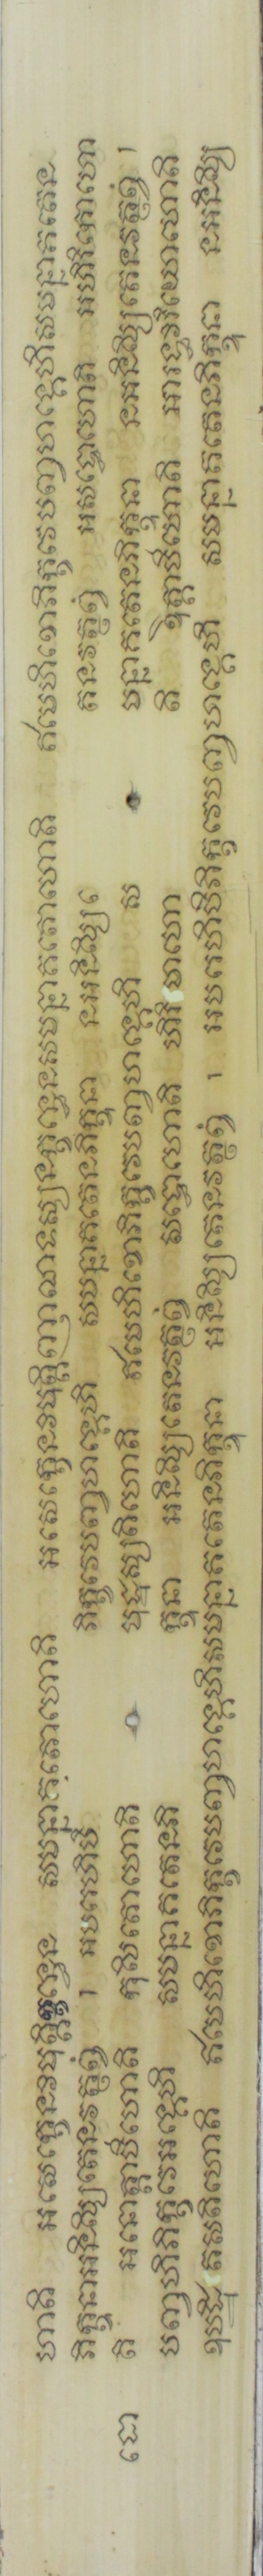 ហោតិ អសេក្ខេនវិមុត្តិក្ខន្ធេន សមន្នាគតោហោតិ អសេក្ខេនវិមុត្តិញាណទស្សនក្ខន្ធេនសមន្នាគតោហោតិ ឥមេហិខោភិក្ខវេបញ្ចហង្គេហិសមន្នាគតេន
ភិក្ខុនាអនិស្សិតេនវត្ថព្វំ ។ អបរេហិបិ ភិក្ខវេបញ្ចហង្គេហិ សមន្នាគតេនភិក្ខុនា នអនិស្សិ តេនវត្ថព្វំ អសទ្ធោហោតិ អហិរិកោហោ
តិ អនោត្តាបីហោតិ កុសិតោហោតិ មុដ្ឋស្សតិហោតិ ឥមេហិខោភិក្ខវេបញ្ចហង្គេហិ ស មន្នាគតេនភិក្ខុនា នអនិស្សិតេនវត្ថព្វំ ។
បញ្ចហិភិក្ខវេអង្គេហិ សមន្នាគតេនភិ ក្ខុនា អនិស្សិតេនវត្ថព្វំ សទ្ធោហោតិ ហិរិមាហោ តិ ឱត្តាបីហោតិ អារទ្ធវិរិយោហោតិ
ឧបដ្ឋិតសតិហោតិ ឥមេហិខោភិក្ខវេបញ្ចហង្គេហិសមន្នាគតេនភិក្ខុនា អនិស្សិតេនវត្ថព្វំ ។ អបរេហិបិភិក្ខវេបញ្ចហង្គេហិ សមន្នាគតេនភិក្ខុនា នអនិស្សិ